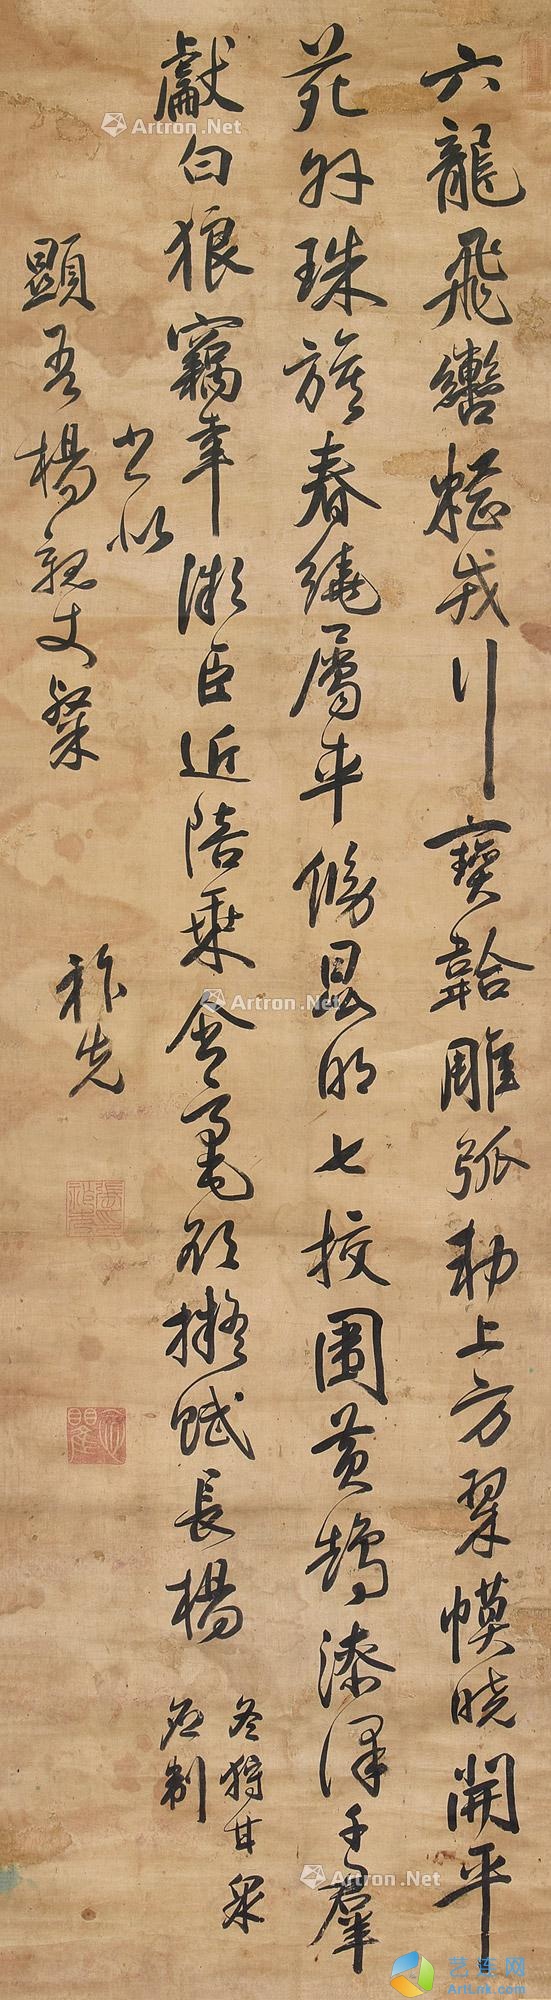 六龍飛轡梐戎行寶鞈雕弧勅上方翠幙曉開平
苑外珠旗春繞屬車傍昆明七校圍黃鵠漆澤千群
獻白狼竊幸微臣近陪乘含毫欲擬賦長楊
冬狩甘泉
應制
書似
顯吾楊親丈粲
祚先
Artron.Net
Artron.Net
Artron.Net
艺连网
ArtLink.com